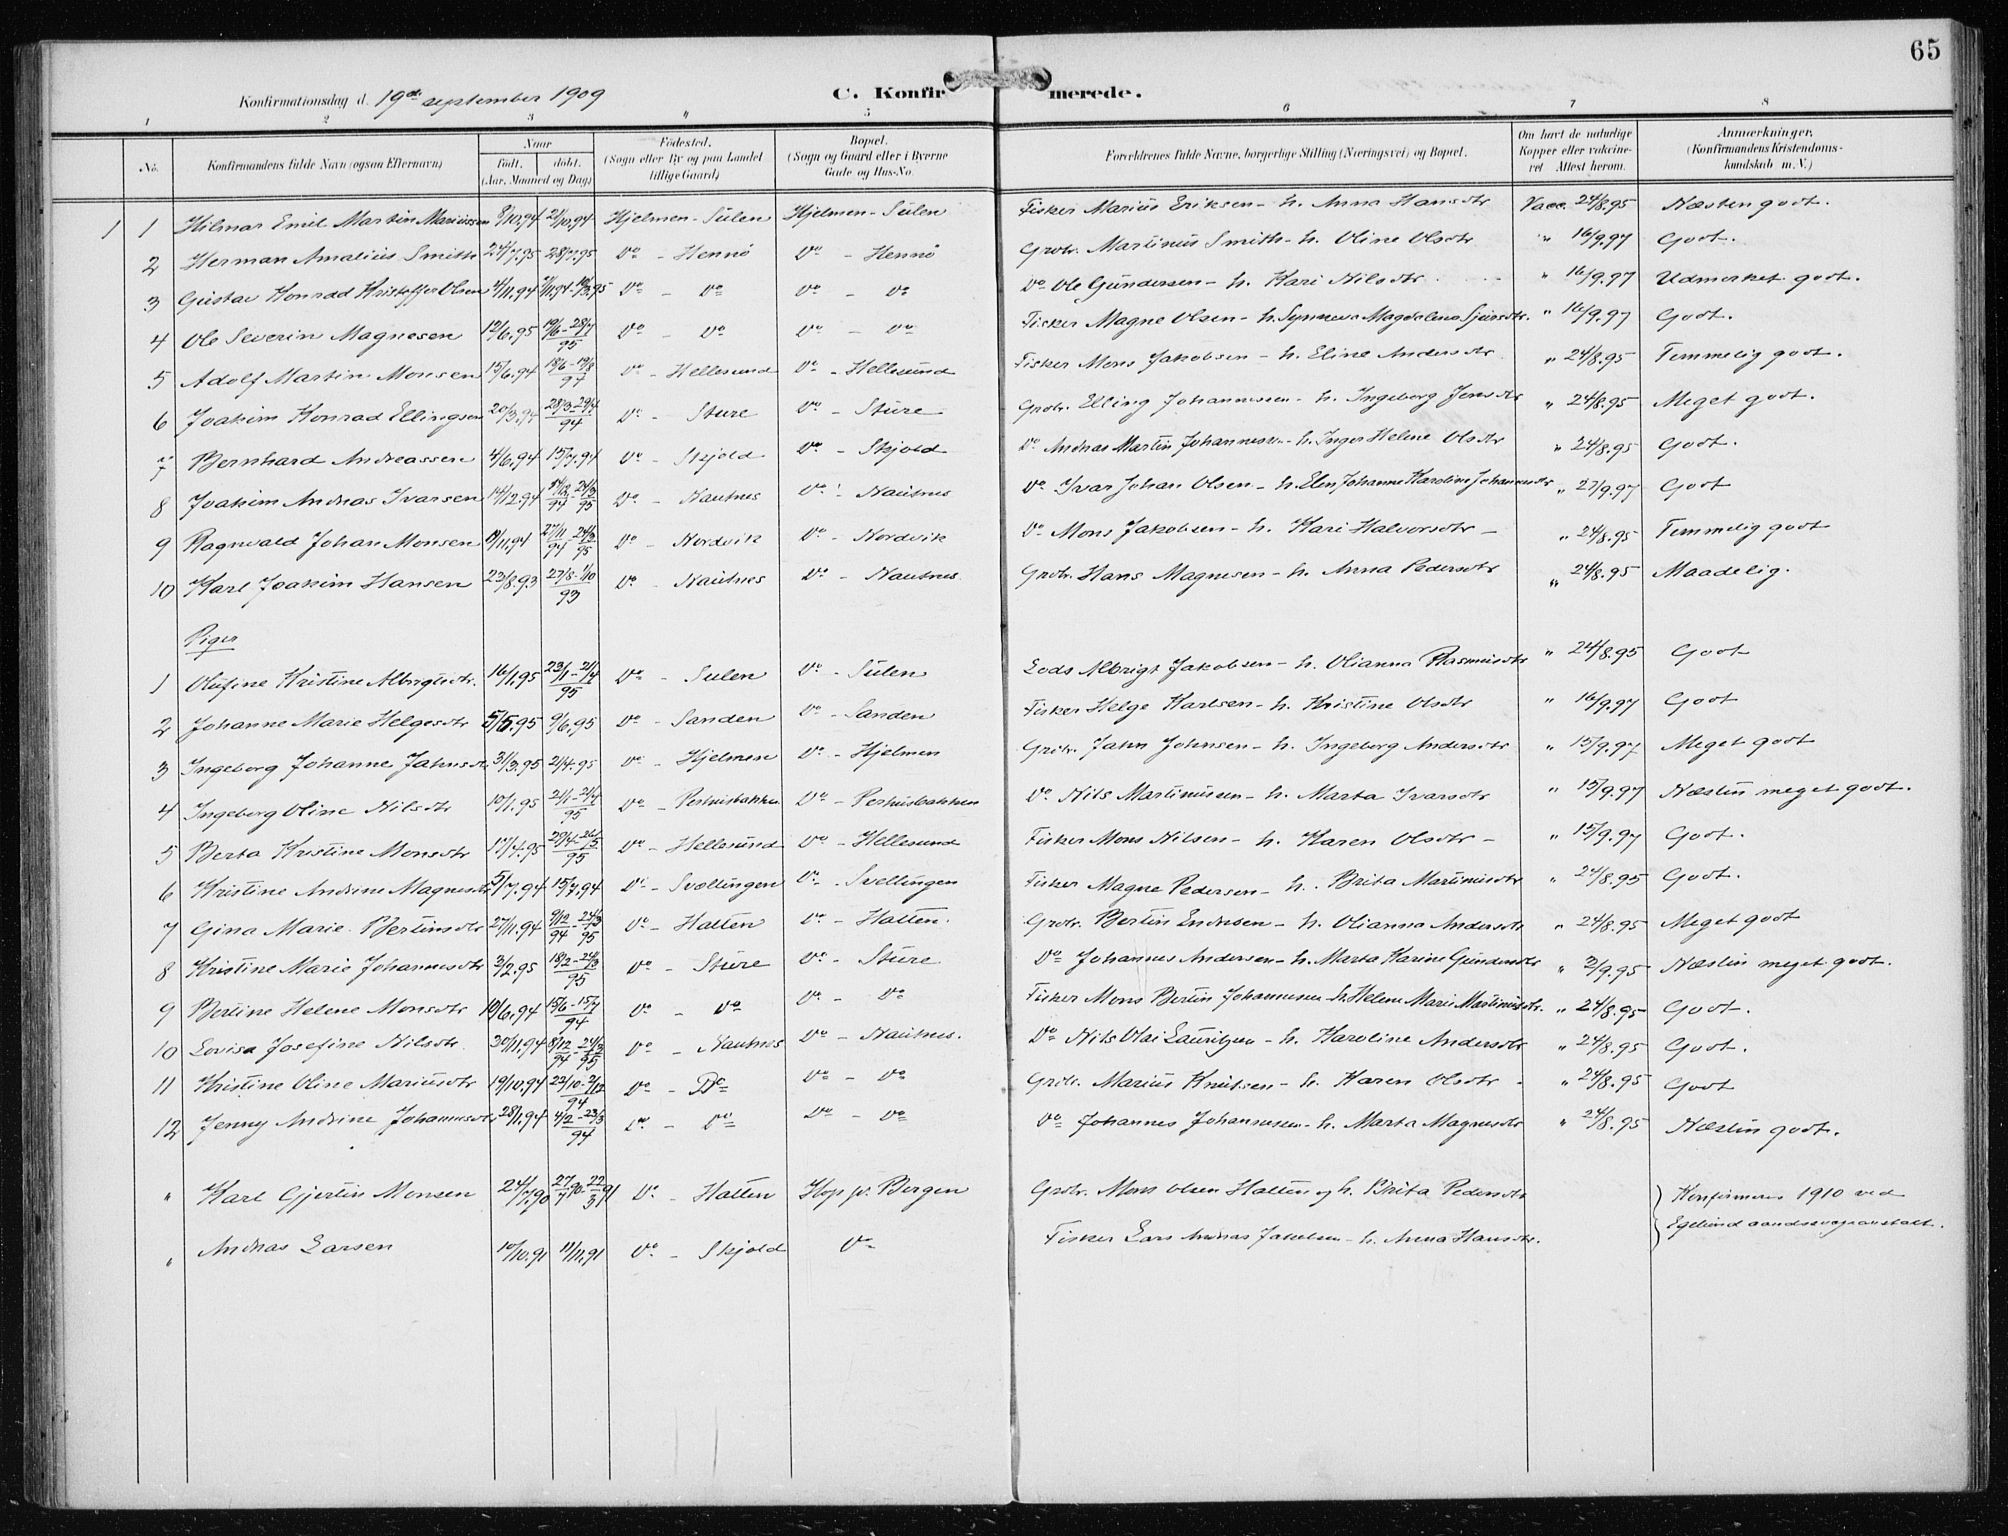 65
Konfirmationsdag d. 19de september 1909
C. Konfirmerede.
1 2 3 4 5 6 7 8
No. Konfirmandens fulde Navn (ogsaa Efternavn) Naar født. døbt. (Aar, Maaned og Dag) Fødested. (Sogn eller By og paa Landet tillige Gaard) Bopæl. (Sogn og Gaard eller i Byerne Gade og Hus-No. Forældrenes fulde Navne, borgerlige Stilling (Næringsvei) og Bopæl. Om havt de naturlige Kopper eller vaccineret Attest herom. Anmærkninger. (Konfirmandens Kristendomskundskab m. V.)
1 1 Hilmar Emil Martin Mariussen 8/10.94 21/10.94 Hjelmen - Sulen Hjelmen - Sulen Fisker Marius Eriksen - h. Anna Hansdtr Vacc. 24/8.95 Næsten godt.
2 Herman Amalius Smith 24/7.95 28/7.95 Do - Hennø Do - Hennø Grdbr. Martinus Smith - h. Oline Olsdtr " 16/9.97 Godt.
3 Gustav Konrad Kristoffer Olsen 4/11.94 Do - Do Do - Do Do Ole Gundersen - h. Kari Nilsdtr " 16/9.97 Udmerket godt.
4 Ole Severin Magnesen 12/6.95 19/6-28/7 95 Do - Do Do - Do Fisker Magne Olsen - h. Synneva Magdalena Sjursdtr. " 16/9.97 Godt.
5 Adolf Martin Monsen 15/6.94 18/6-19/8 94 Do - Hellesund Do - Hellesund Fisker Mons Jakobsen - h. Eline Andersdtr " 24/8.95 Temmelig godt.
6 Joakim Konrad Ellingsen 20/3.94 28/3-29/4 94 Do - Sture Do - Sture Grdbr. Elling Johannessen - h. Ingeborg Jensdtr " 24/8.95 Meget godt.
7 Bernhard Andreassen 4/6.94 15/7.94 Do - Skjold Do - Skjold Do Andreas Martin Johannessen - h. Inger Helene Olsdtr " 24/8.95 Godt.
8 Joakim Andreas Ivarsen 14/12.94 94 95 Do - Nautnes Do - Nautnes Do Ivar Johan Olsen - h. Elen Johanne Karoline Johannesdtr " 27/9.97 Godt
9 Ragnvald Johan Monsen 27/11 94 - 24/3 95 Do - Nordvik Do - Nordvik Do Mons Jakobsen - h. Kari Halvorsdtr - " 24/8.95 Temmelig godt
10 Karl Joakim Hansen 23/8.93 27/8-1/10 93 Do - Nautnes Do - Nautnes. Grdbr. Hans Magnesen - h. Anna Pedersdtr " 24/8.95 Maadelig.
Piger
1 Olufine Kristine Albrigtsdtr. 16/1.95 23/1-21/4 95 Do - Sulen Do - Sulen Lods Albrigt Jakobsen - h. Olianna Rasmusdtr " 24/8.95 Godt
2 Johanne Marie Helgesdtr 5/5.95 9/6.95 Do - Sanden Do - Sanden Fisker Helge Karlsen - h. Kristine Olsdtr " 16/9.97 Godt
3 Ingeborg Johanne Jahnsdt. 31/3.95 21/4.95 Do - Hjelmen Do - Hjelmen Grdbr. Jahn Johnsen - h. Ingeborg Andersdtr " 15/9.97 Meget godt
4 Ingeborg Oline Nilsdtr 10/1.95 21/1-21/4 95 Do - Perhusbakken Do - Perhusbakken Do Nils Martinussen - h. Marta Ivarsdtr " 15/9.97 Næsten meget godt.
5 Berta Kristine Monsdtr 17/4.95 25/4-26/5 95 Do - Hellesund Do - Hellesund Fisker Mons Nilsen - h. Karen Olsdtr - " 15/9.97 Godt.
6 Kristine Andrine Magnesdtr 5/7.94 15/7.94 Do - Svellingen Do - Svellingen Fisker Magne Pedersen - h. Brita Martinusdtr " 24/8.95 Godt.
7 Gina Marie Bertinsdtr 27/11.94 9/12 94 - 24/3 95 Do - Hatten Do - Hatten. Grdbr. Bertin Endresen - h. Olianna Andersdtr " 24/8.95 Meget godt
8 Kristine Marie Johannesdtr 3/2.95 18/2-24/3 95 Do - Sture Do - Sture Do Johannes Andersen - h. Marta Karine Gundersdtr " 3/9.95 Næsten meget godt.
9 Bertine Helene Monsdtr 10/6.94 15/6-15/7 94 Do - Do Do - Do Fisker Mons Bertin Johannessen - h. Helene Marie Martinusdtr. " 24/8.95 Godt.
10 Lovisa Josefine Nilsdtr. 30/11.94 8/12 94 - 24/3 95 Do - Nautnes Do - Nautnes. Do Nils Olai Lauritzen - h. Karoline Andersdtr " 24/8.95 Godt.
11 Kristine Oline Mariusdtr 19/10.94 22/10-2/12 94 Do - Do Do - Do Grdbr. Marius Knutsen - h. Karen Olsdtr - " 24/8.95 Godt
12 Jenny Andrine Johannesdtr 28/1.94 4/2-23/3 94 Do - Do Do - Do Do Johannes Johannessen - h. Marta Magnesdtr " 24/8.95 Næsten godt.
" Karl Gjertin Monsen 24/7.90 27/7 90 - 22/3 91 Do - Hatten Hop pr. Bergen Grdbr. Mons Olsen Hatten og h. Brita Pedersdtr Konfirmeres 1910 ved
" Andreas Larsen 10/10.91 11/11.91 Do - Skjold Do Fisker Lars Andreas Jakobsen - h. Anna Hansdtr. Eglund aandssvageanstalt.